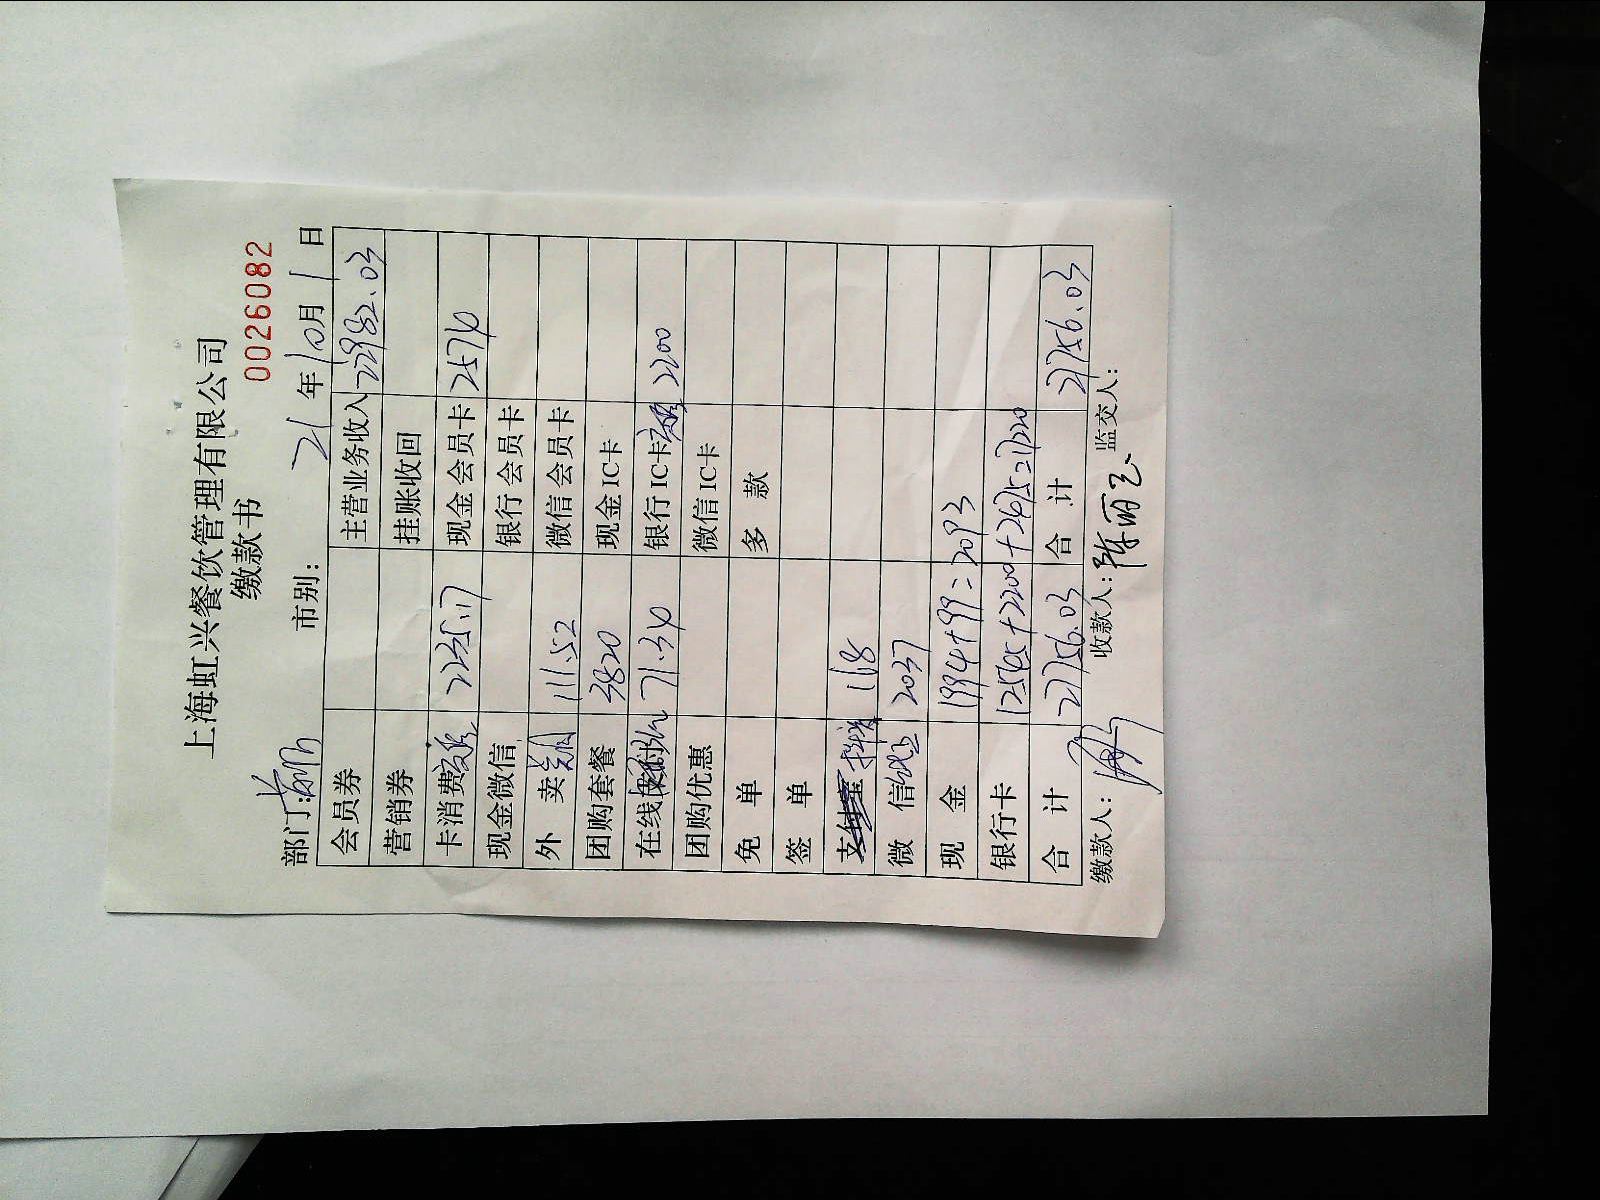 上海虹兴餐饮管理有限公司
缴款书
0026082
部门: 市别: 21年10月1日
会员券 主营业务收入 22982.03
营销券 挂账收回
卡消费 2235.17 现金会员卡 2574
现金微信 银行会员卡
外 卖 111.52 微信会员卡
团购套餐 3820 现金IC卡
在线 71.34 银行IC卡 2200
团购优惠 微信IC卡
免 单 多 款
签 单
支付宝 118
微 信 2037
现 金 1994+99=2093
银行卡 12595+2200+2475=17270
合 计 27756.03 合 计 27756.03
缴款人: 收款人:陈丽 监交人: